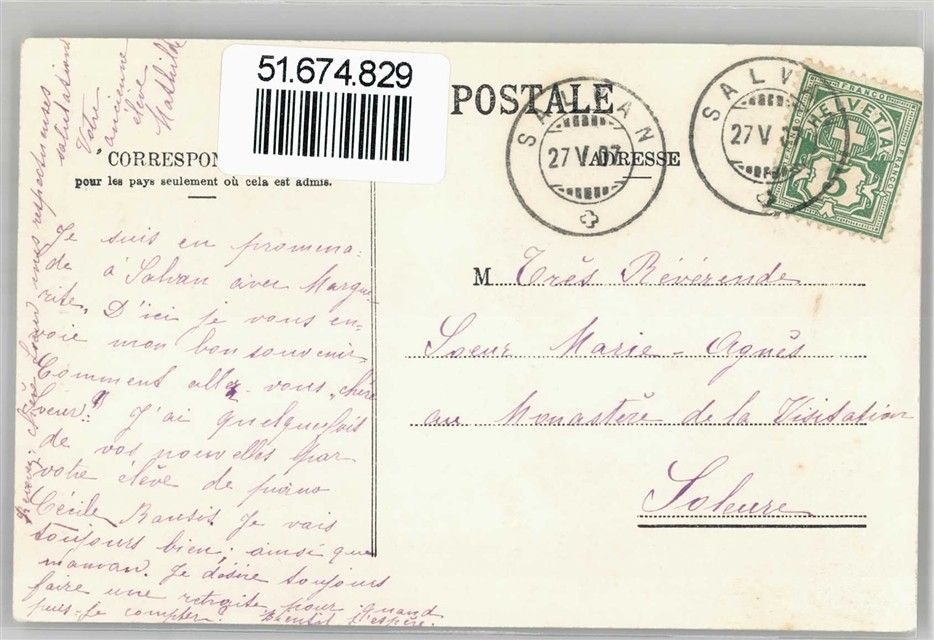 51.674.829
POSTALE
CORRESPON
ADRESSE
pour les pays seulement où cela est admis.
SALVAN
27 V.07
SALV
27 V.07
FRANCO
HELVETIA
5
M Très Révérende
Soeur Marie-Agnès
au Monastère de la Visitation
Soleure
Je suis en promena-
de à Salvan avec Margue-
rite. D'ici je vous en-
voie mon bon souvenir.
Comment allez-vous, chère
Soeur? J'ai quelquefois
de vos nouvelles par
votre élève de piano
Cécile Je vais
toujours bien; ainsi que
maman. Je désire toujours
faire une retraite, pour quand
puis-je compter? Bientôt j'espère.
chère Soeur, mes respectueuses
salutations
Votre
ancienne
élève
Mathilde